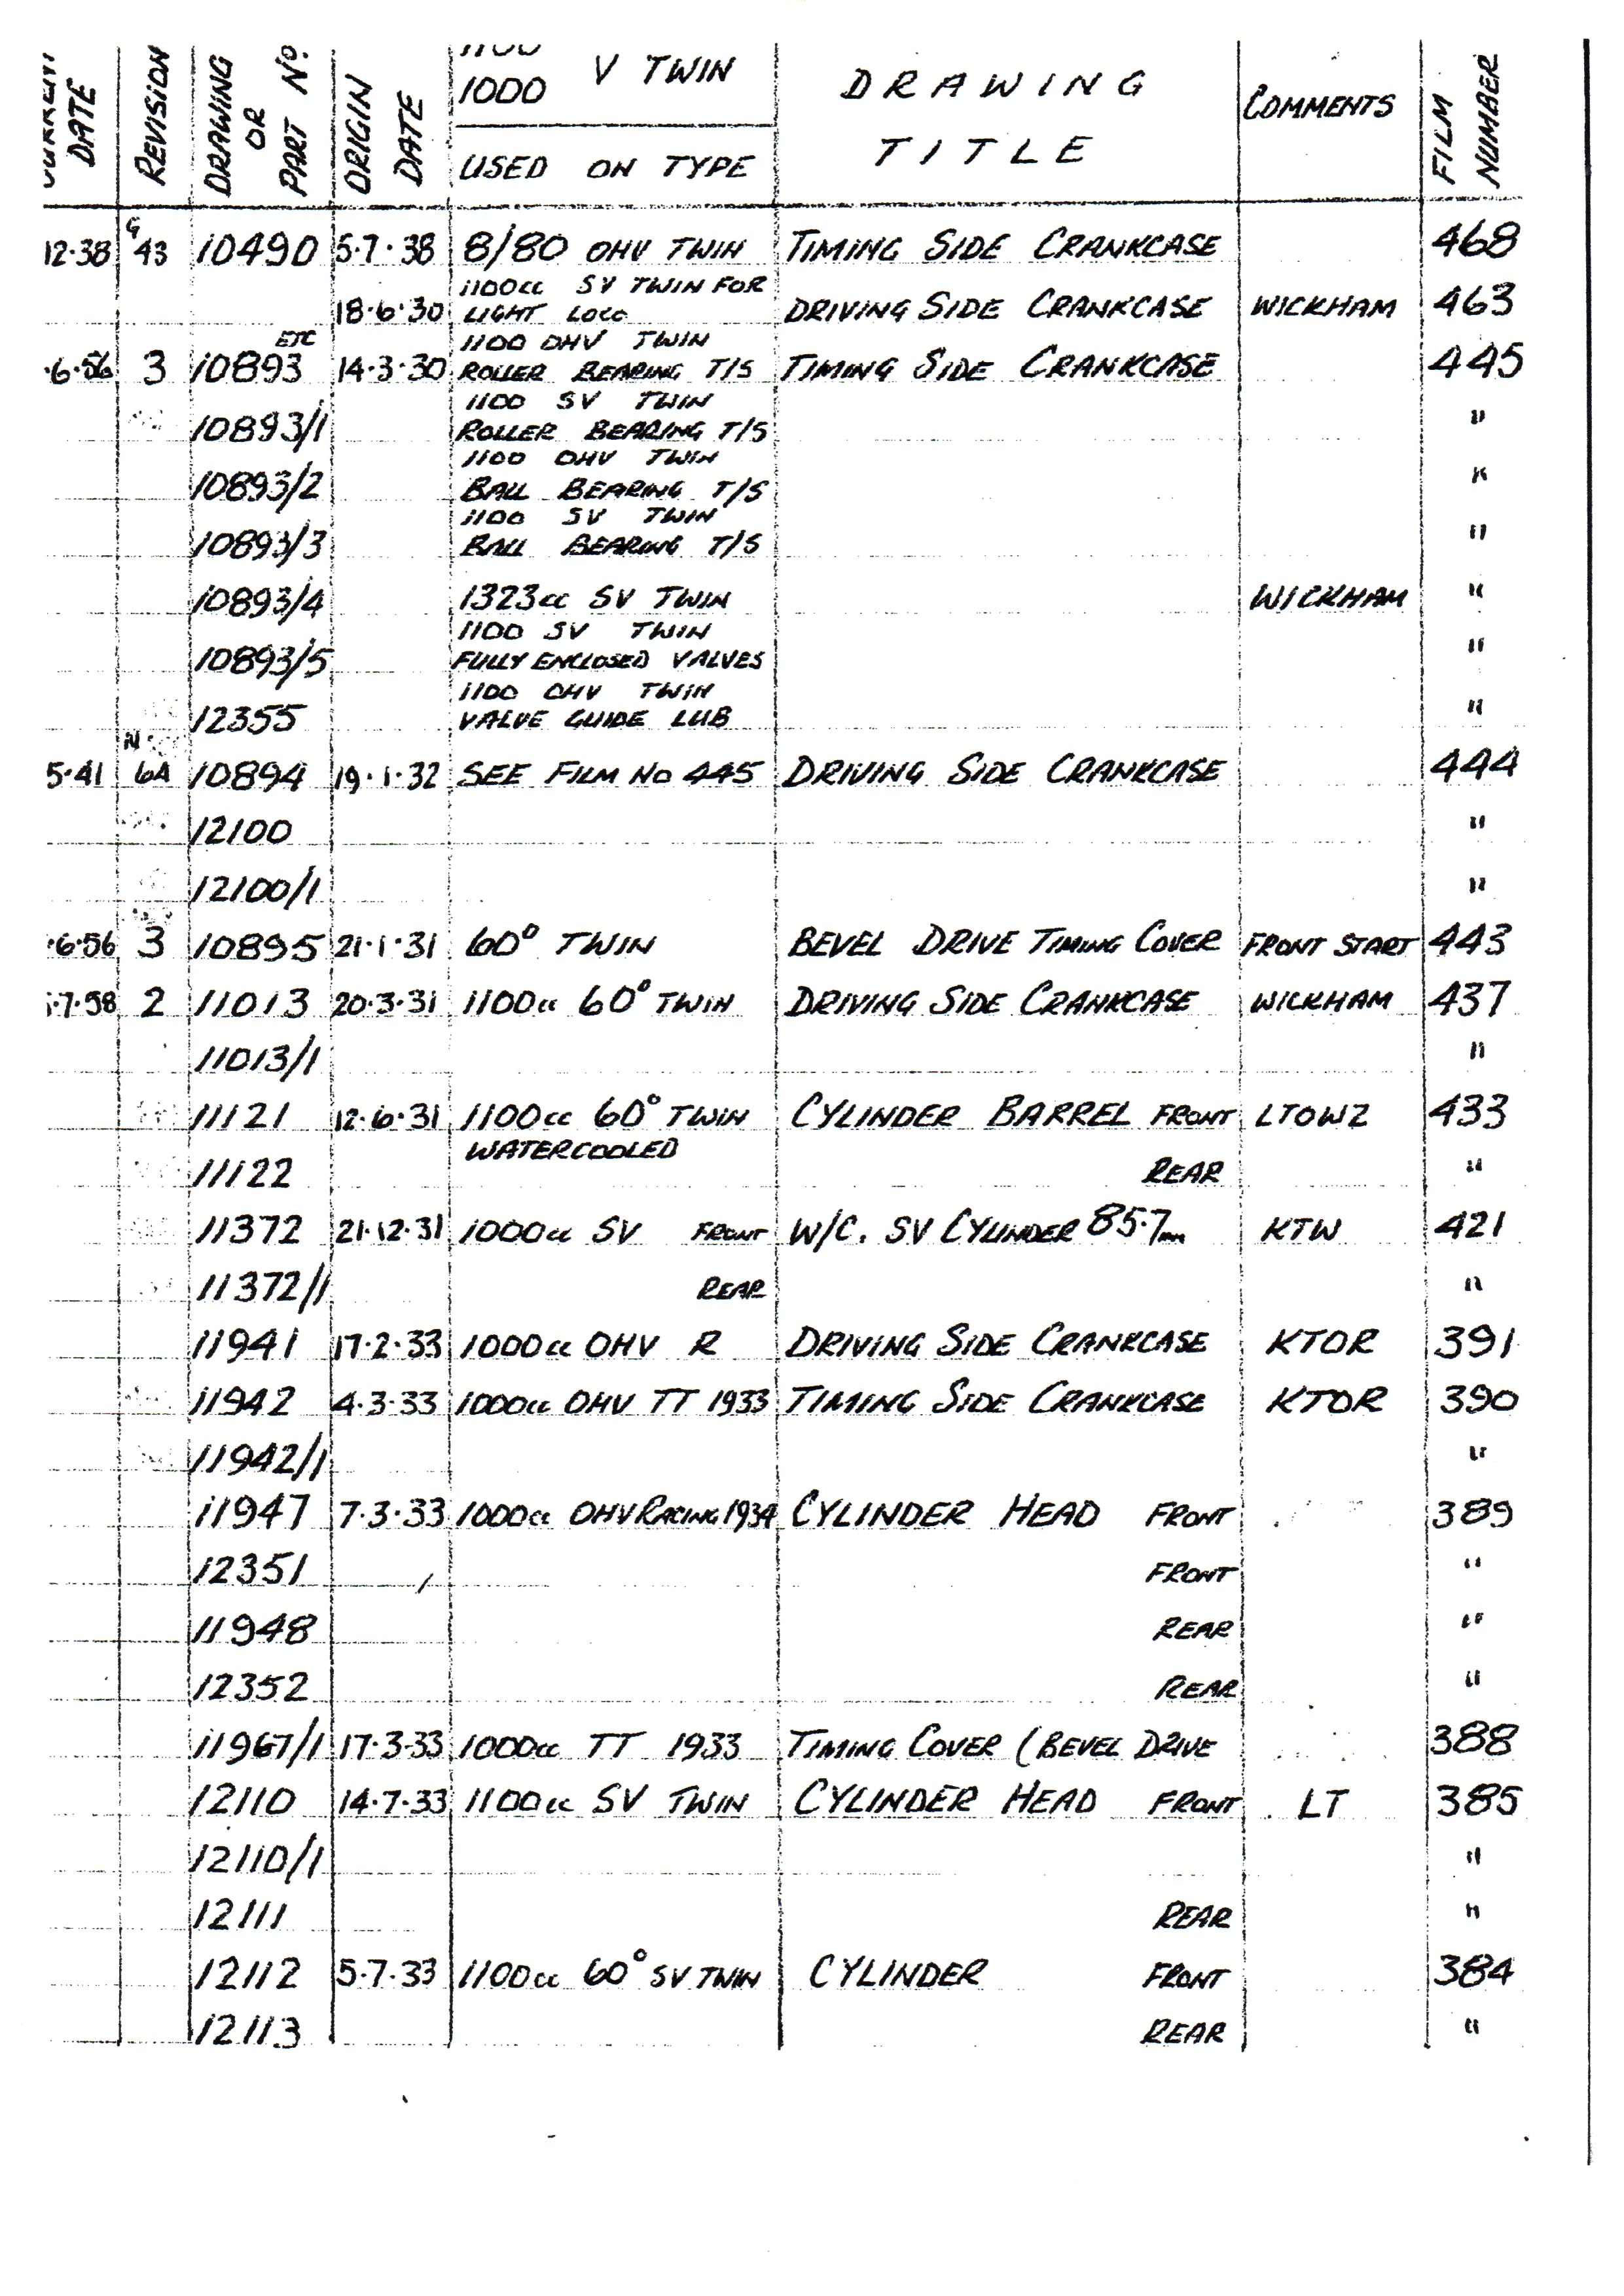 CURRENT DATE REVISION DRAWING OR PART Nº ORIGIN DATE 1100 1000 V TWIN USED ON TYPE DRAWING TITLE COMMENTS FILM NUMBER
12·38 G 43 10490 5·7·38 8/80 OHV TWIN TIMING SIDE CRANKCASE 468
1100cc SV TWIN FOR
18·6·30 LIGHT LOCO DRIVING SIDE CRANKCASE WICKHAM 463
ETC 1100 OHV TWIN
·6·56 3 10893 14·3·30 ROLLER BEARING T/S TIMING SIDE CRANKCASE 445
1100 SV TWIN
10893/1 ROLLER BEARING T/S "
1100 OHV TWIN
10893/2 BALL BEARING T/S "
1100 SV TWIN
10893/3 BALL BEARING T/S "
10893/4 1323cc SV TWIN WICKHAM "
1100 SV TWIN
10893/5 FULLY ENCLOSED VALVES "
1100 OHV TWIN
12355 VALVE GUIDE LUB "
N
5·41 6A 10894 19·1·32 SEE FILM No 445 DRIVING SIDE CRANKCASE 444
12100 "
12100/1 "
·6·56 3 10895 21·1·31 60° TWIN BEVEL DRIVE TIMING COVER FRONT START 443
·7·58 2 11013 20·3·31 1100cc 60° TWIN DRIVING SIDE CRANKCASE WICKHAM 437
11013/1 "
11121 12·6·31 1100cc 60° TWIN CYLINDER BARREL FRONT LTOWZ 433
WATERCOOLED
11122 REAR "
11372 21·12·31 1000cc SV FRONT W/C. SV CYLINDER 85·7mm KTW 421
11372/1 REAR "
11941 17·2·33 1000cc OHV R DRIVING SIDE CRANKCASE KTOR 391
11942 4·3·33 1000cc OHV TT 1933 TIMING SIDE CRANKCASE KTOR 390
11942/1 "
11947 7·3·33 1000cc OHV RACING 1934 CYLINDER HEAD FRONT 389
12351 FRONT "
11948 REAR "
12352 REAR "
11967/1 17·3·33 1000cc TT 1933 TIMING COVER (BEVEL DRIVE 388
12110 14·7·33 1100cc SV TWIN CYLINDER HEAD FRONT LT 385
12110/1 "
12111 REAR "
12112 5·7·33 1100cc 60° SV TWIN CYLINDER FRONT 384
12113 REAR "